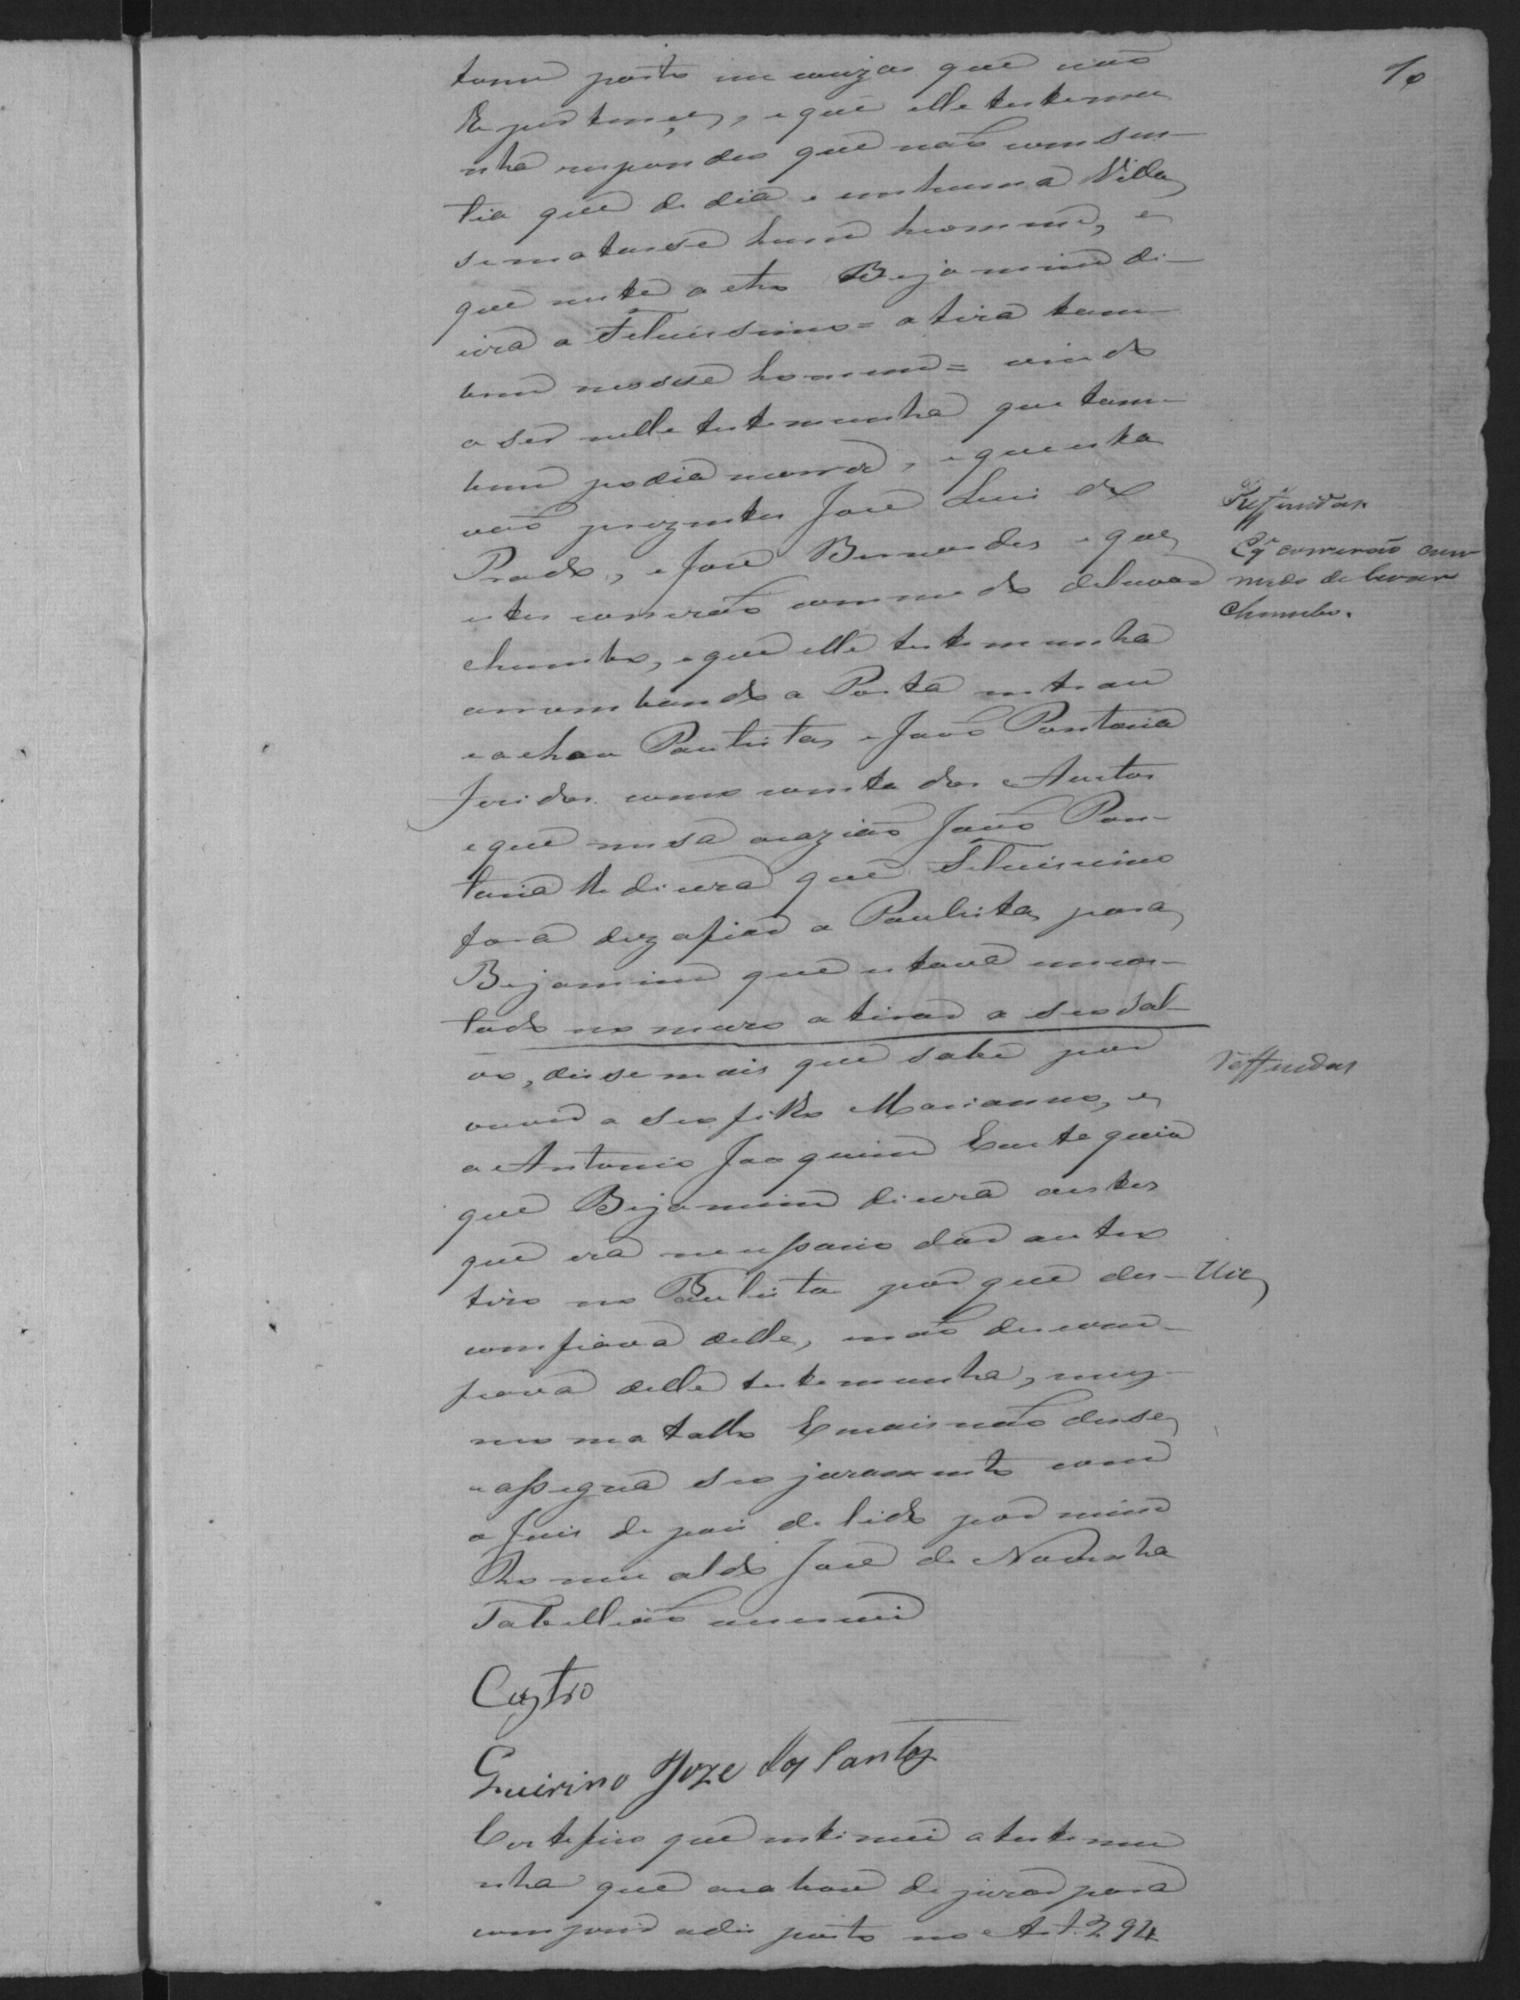 10
tome parte em couzas que não
lhe pertence, e que elle testemu
nha respondeo que não comsen-
tia que de dia e emhuma Villa
sematasse hum homem, e
que neste acto Bejamim di-
cera a Felicissimo = atira tam-
bem nesse homem = vindo
a ser nelle testemunha que tam-
bem podia morrer, e que esta
vão prezentes José Luis do
Prado, e José Bernardes e que
estes correrão com medo de levar
chumbo, e que elle testemunha
arrombando a Porta entrou
e achou Paulista, e João Pontaria
feridos como consta dos Autos
e que nessa ocazião João Pon-
taria lhe dicera que Felicissimo
fora dezafiar a Paulista para
Bejamim que estava encos-
tado no muro atirar a seo sal-
vo, disse mais que sabe por
ouvir a seo filho Marianno, e
a Antonio Joaquim
que Bejamim dicera antes
que era necessario dar antes
tiro no Paulista por que des-
comfiava delle, e não descom-
fiava delle testemunha, nem
no matallo E mais não disse
e assigna seo juramento com
o Juis de pois de lido por mim
Romualdo José de Noronha
Tabellião escrevi
Castro
Quirino Joze dos Santos
Certefico que entimei a testemu
nha que acabou de jurar para
comprir a disposto no Art. 294
Refferidas
E q' correrão com
medo de levar
chumbo.
Refferidas